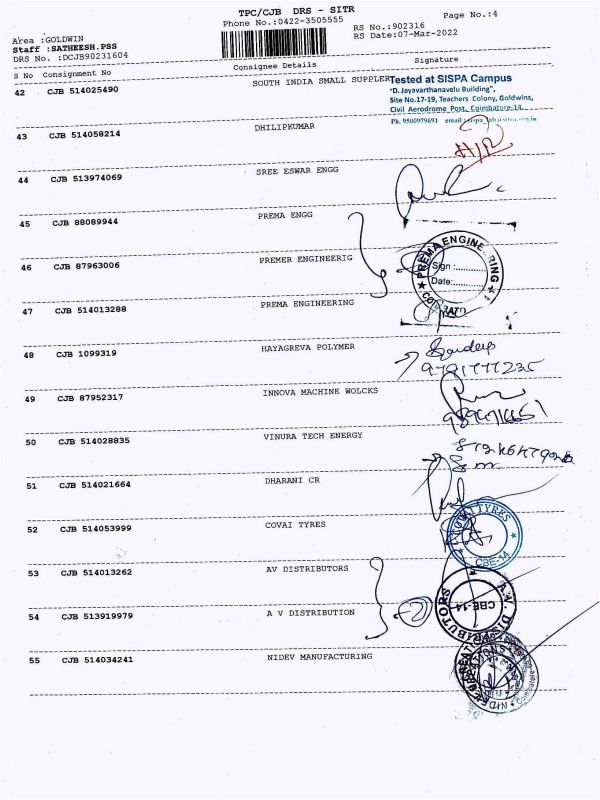 TPC/CJB DRS - SITR
Phone No.:0422-3505555
Page No.:4
RS No.:902316
RS Date:07-Mar-2022
Area :GOLDWIN
Staff :SATHEESH.PSS
DRS No. :DCJB90231604
S No Consignment No Consignee Details Signature
42 CJB 514025490 SOUTH INDIA SMALL SUPPLER
Tested at SISPA Campus
"D. Jayavarthanavelu Building",
Site No.17-19, Teachers Colony, Goldwins,
Civil Aerodrome Post, Coimbatore-14.
Ph. 9500979691 email
43 CJB 514058214 DHILIPKUMAR
44 CJB 513974069 SREE ESWAR ENGG
45 CJB 88089944 PREMA ENGG
46 CJB 87963006 PREMER ENGINEERIG
PREMA ENGINEERING
Sign :
Date:
47 CJB 514013288 PREMA ENGINEERING
48 CJB 1099319 HAYAGREVA POLYMER
49 CJB 87952317 INNOVA MACHINE WOLCKS
50 CJB 514028835 VINURA TECH ENERGY
51 CJB 514021664 DHARANI CR
52 CJB 514053999 COVAI TYRES
COVAI TYRES
CBE-14
53 CJB 514013262 AV DISTRIBUTORS
A.V. DISTRIBUTORS
CBE-14
54 CJB 513919979 A V DISTRIBUTION
55 CJB 514034241 NIDEV MANUFACTURING